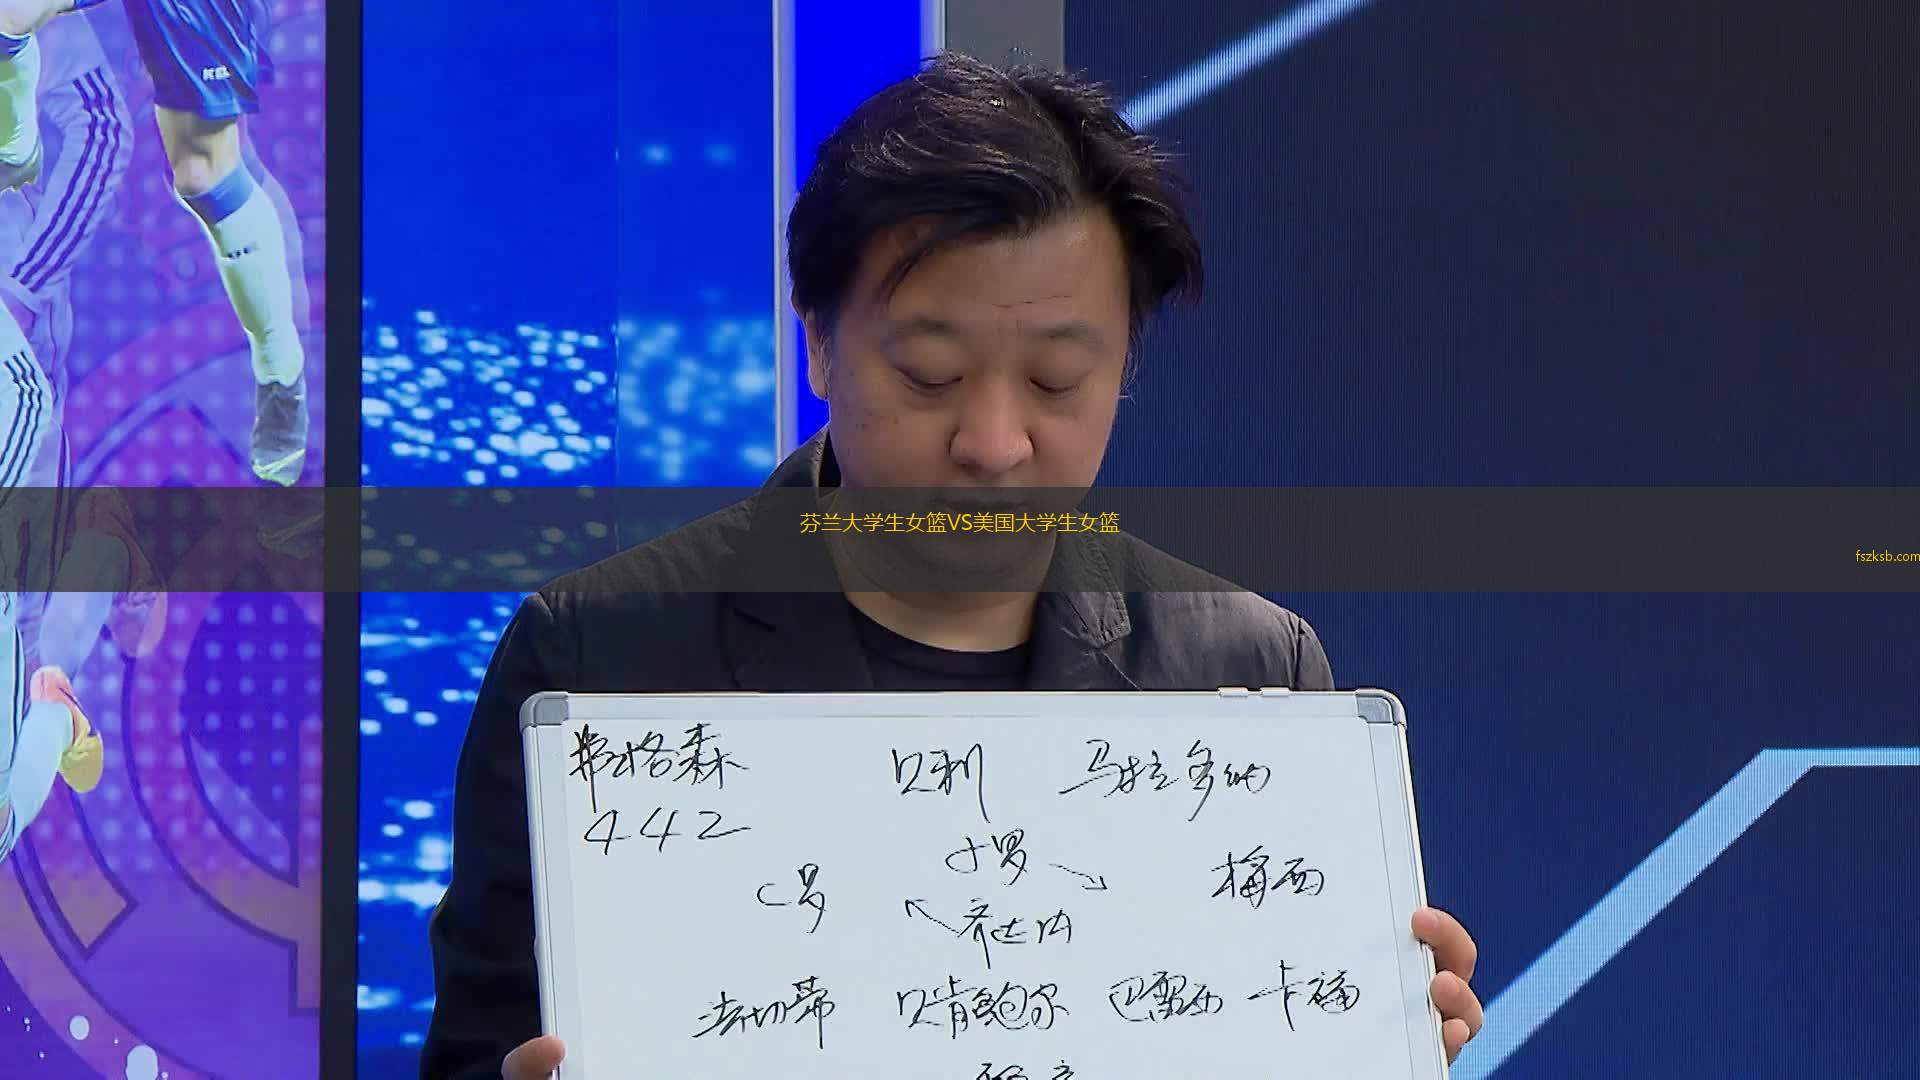 KEL
芬兰大学生女篮VS美国大学生女篮
fszksb.com
弗格森 贝利 马拉多纳
442
小罗
C罗 梅西
齐达内
法切蒂 贝肯鲍尔 巴雷西 卡福